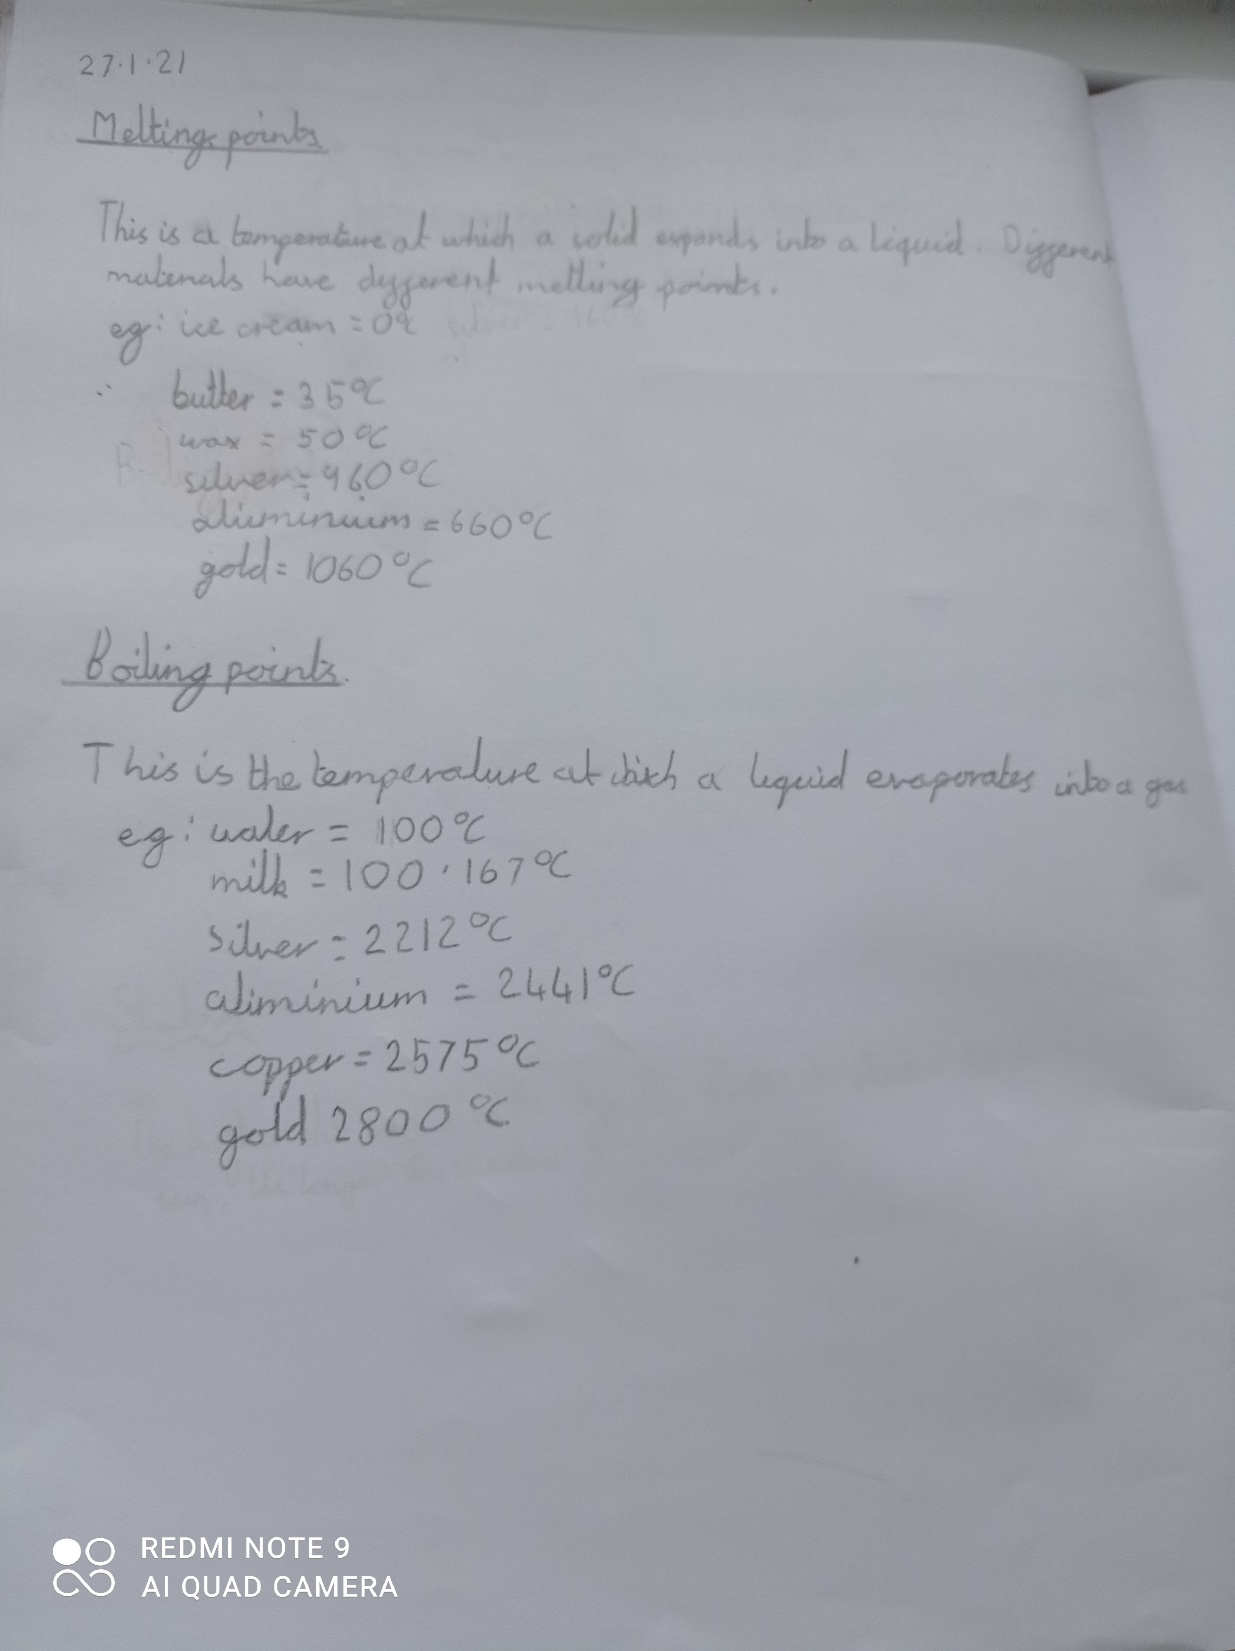 27.1.21
Melting points
This is a temperature at which a solid expands into a liquid. Different
materials have different melting points.
eg: ice cream = 0°c
butter = 35°C
wax = 50°C
silver = 960°C
aluminium = 660°C
gold = 1060°C
Boiling points.
This is the temperature at which a liquid evaporates into a gas
eg: water = 100°C
milk = 100.167°C
silver = 2212°C
aliminium = 2441°C
copper = 2575°C
gold 2800°C
REDMI NOTE 9
AI QUAD CAMERA